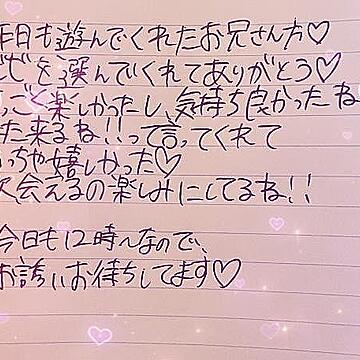 昨日も遊んでくれたお兄さん方♡
を選んでくれてありがとう♡
っごく楽しかったし、気持ち良かったね
た来るね!!って言ってくれて
っちゃ嬉しかった♡
次会えるの楽しみにしてるね!!
今日も12時〜なので、
お誘いお待ちしてます♡